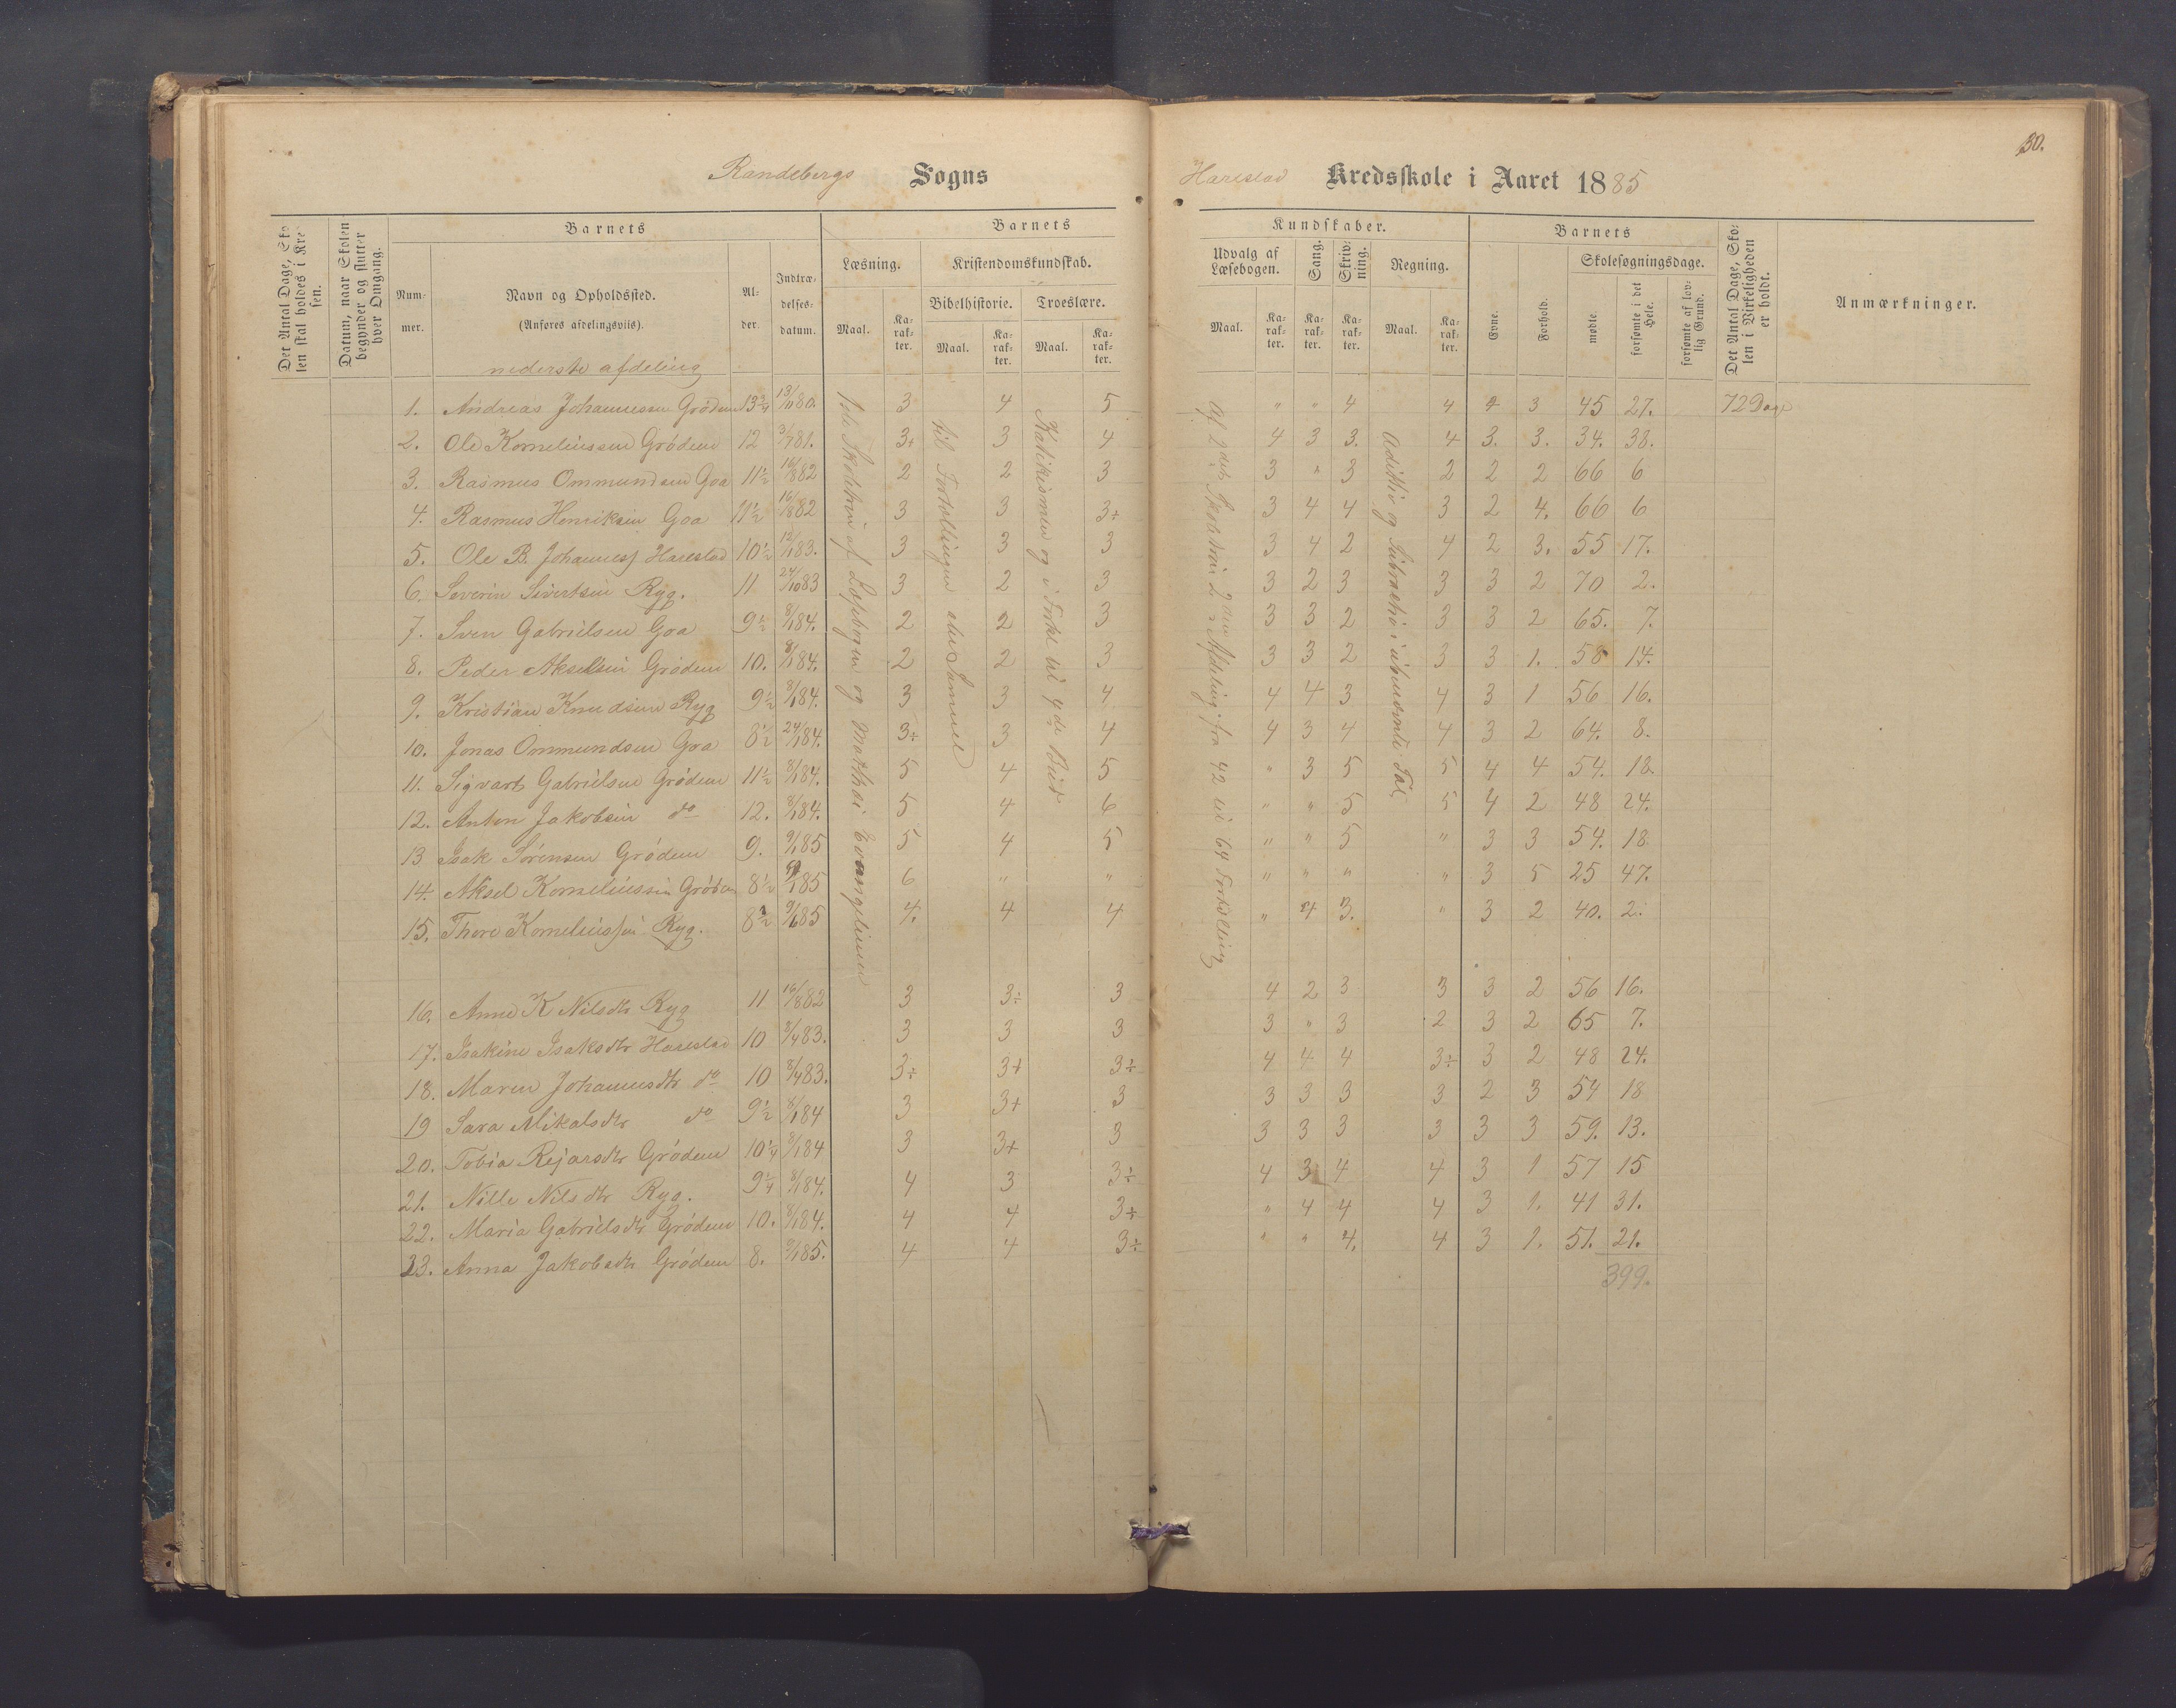 50.
Randebergs Sogns
Harestad Kredsskole i Aaret 1885
Det Antal Dage, Skolen skal holdes i Kredsen.
Datum, naar Skolen begynder og slutter hver Omgang.
Barnets
Nummer.
Navn og Opholdssted.
(Anføres afdelingsviis).
Alder.
Indtrædelsesdatum.
Barnets
Læsning.
Maal.
Karakter.
Kristendomskundskab.
Bibelhistorie.
Maal.
Karakter.
Troeslære.
Maal.
Karakter.
Kundskaber.
Udvalg af Læsebogen.
Maal.
Karakter.
Sang.
Karakter.
Skrivning.
Karakter.
Regning.
Maal.
Karakter.
Barnets
Evne.
Forhold.
Skolesøgningsdage.
mødte.
forsømte i det Hele.
forsømte af lovlig Grund.
Det Antal Dage, Skolen i Virkeligheden er holdt.
Anmærkninger.
nederste afdeling
1. Andreas Johannessen Grødem 13 3/4 13/11 80. 3 4 5 " " 4 4 4 3 45 27. 72 Dage
2. Ole Korneliussen Grødem 12 3/7 81. 3+ 3 4 4 3 3. 4 3. 3. 34. 38.
3. Rasmus Ommundsen Goa 11 1/2 16/8 82 2 2 3 3 " 3 2 2 2 66 6
4. Rasmus Henriksen Goa 11 1/2 16/8 82 3 3 3÷ 3 4 4 3 2 4. 66 6
5. Ole B. Johanness. Harestad 10 1/2 12/1 83. 3 3 3 3 4 2 4 2 3. 55 17.
6. Severin Sivertsen Ryg. 11 24/10 83 3 2 3 3 2 3 3 3 2 70 2.
7. Sven Gabrielsen Goa 9 1/2 8/1 84. 2 2 3 3 3 2 3 3 2 65. 7.
8. Peder Akselsen Grødem 10. 8/1 84. 2 2 3 3 3 2 3 3 1. 58 14.
9. Kristian Knudsen Ryg 9 1/2 8/1 84. 3 3 4 4 4 3 4 3 1 56 16.
10. Jonas Ommundsen Goa 8 1/2 24/1 84. 3÷ 3 4 4 3 4 4 3 2 64. 8.
11. Sigvart Gabrielsen Grødem 11 1/2 8/1 84. 5 4 5 " 3 5 5 4 4 54. 18.
12. Anton Jakobsen do 12. 8/1 84. 5 4 6 " " 5 5 4 2 48 24.
13 Isak Sørensen Grødem 9. 9/1 85 5 4 5 " " 5 " 3 3 54. 18
14. Aksel Korneliussen Grødem 8 1/2 85 6 " " " " " " 3 5 25 47.
15. Thore Korneliussen Ryg. 8 1/2 9/6 85 4. 4 4 " 4 3. " 3 2 40. 2.
16. Anne K Nilsdtr Ryg 11 16/8 82 3 3÷ 3 4 2 3 3 3 2 56 16.
17. Isakine Isaksdtr Harestad 10 3/4 83. 3 3 3 3 " 3 2 3 2 65 7.
18. Maren Johannesdtr do 10 3/4 83. 3÷ 3+ 3÷ 4 4 4 3÷ 3 2 48 24.
19 Sara Mikalsdtr do 9 1/2 8/1 84 3 3+ 3 3 3 3 3 2 3 54 18
20. Tobia Rejarsdtr Grødem 10 1/4 8/1 84 3 3+ 3 3 3 3 3 3 3 59. 13.
21. Nille Nilsdtr Ryg. 9 1/4 8/1 84. 4 3 3÷ 4 3 4 4 3 1 57 15
22. Maria Gabrielsdtr Grødem 10. 8/1 84. 4 4 3÷ " 4 4 4 3 1. 41 31.
23. Anna Jakobsdtr Grødem 8. 9/1 85. 4 4 3÷ " " 4. 4 3 1. 51. 21.
399.
af Læsebogen og Matthæi Evangelium
til Fortællingen om Samuel
Katekismen og i Forkl til 4de Bud
Af 2det Skoletrin 2den Afdeling fra 42 til 64 Fortælling
Addition og Subtraktion i ubenævnte Tal